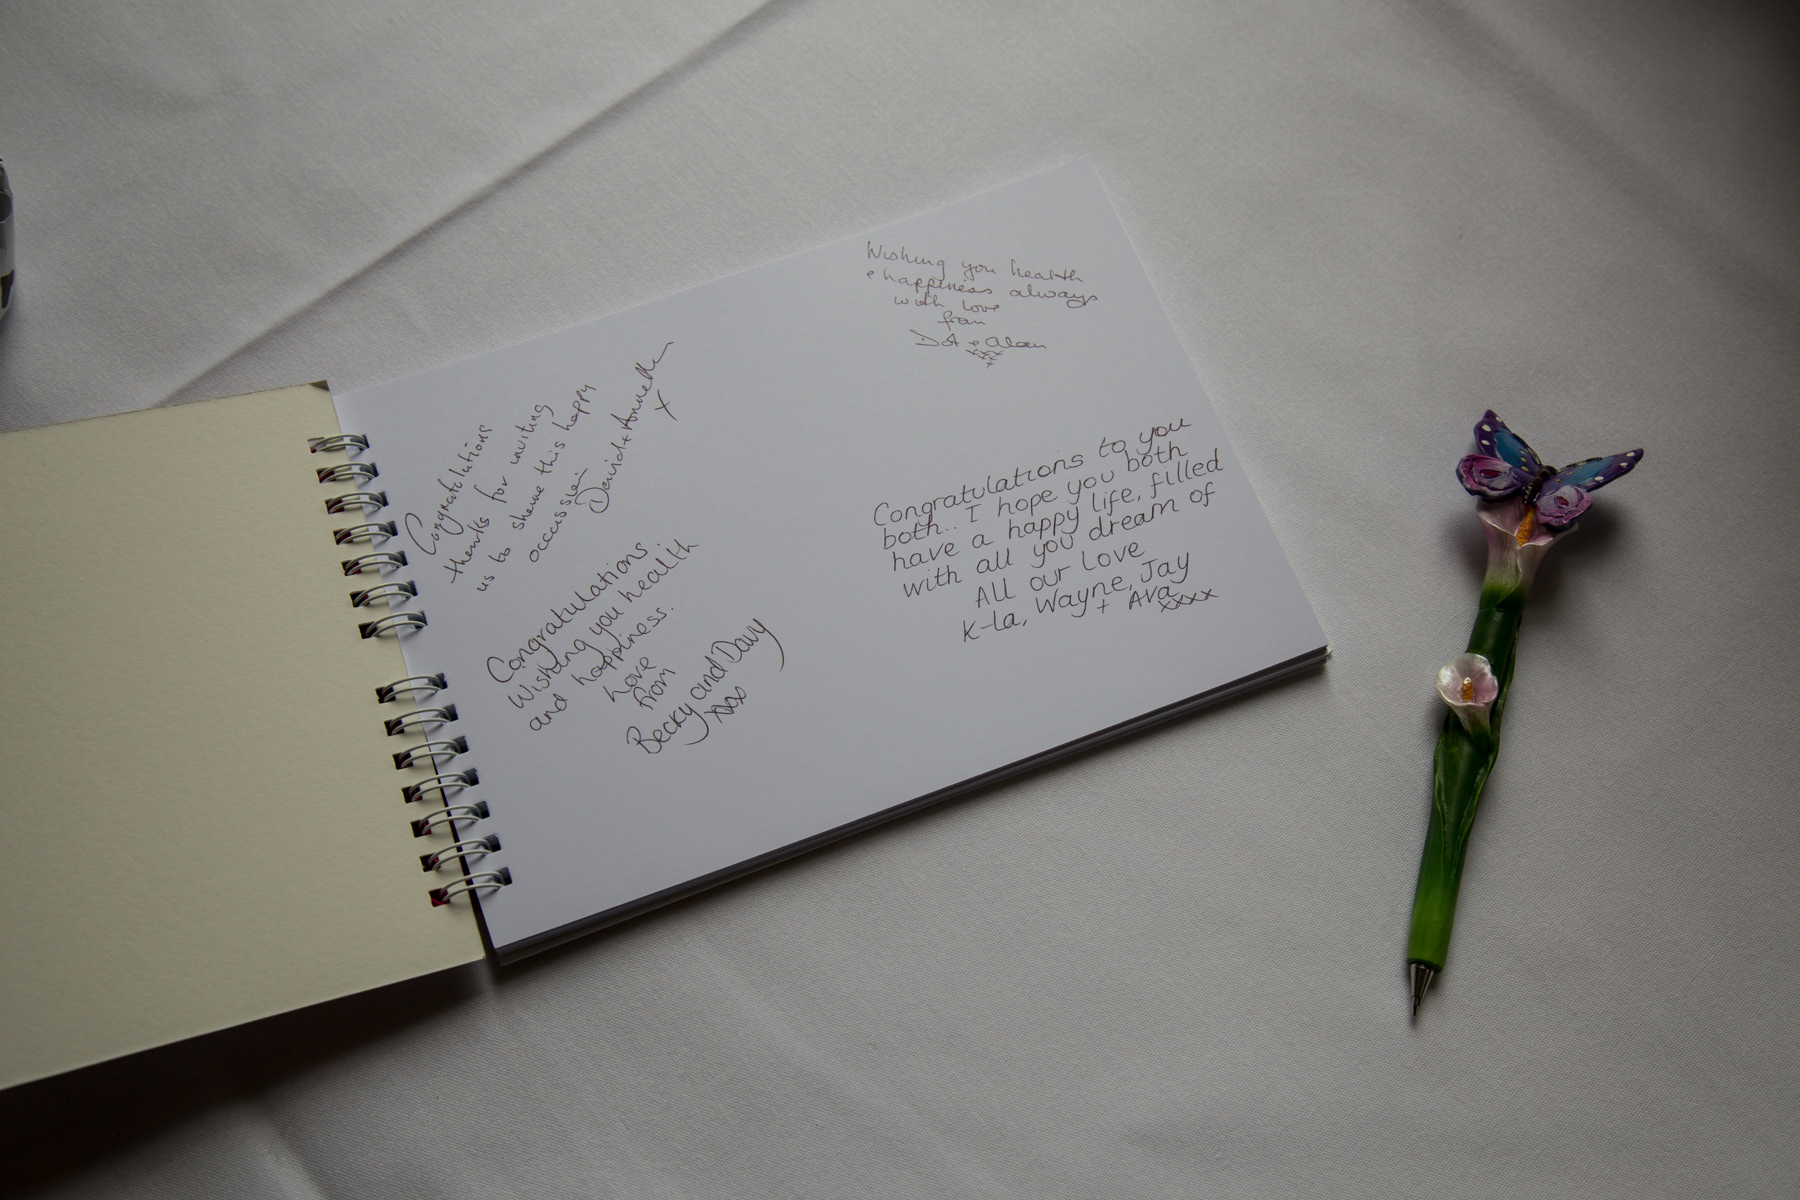 Congratulations
thanks for inviting
us to share this happy
occassion
David & Annette
x
Congratulations
Wishing you health
and happiness.
Love
from
Becky and Davy
xxx
Wishing you health
& happiness always
with love
from
Dot & Alan
xxx
x
Congratulations to you
both.. I hope you both
have a happy life, filled
with all you dream of
All our love
K-la, Wayne, Jay
+ Ava
xxxx